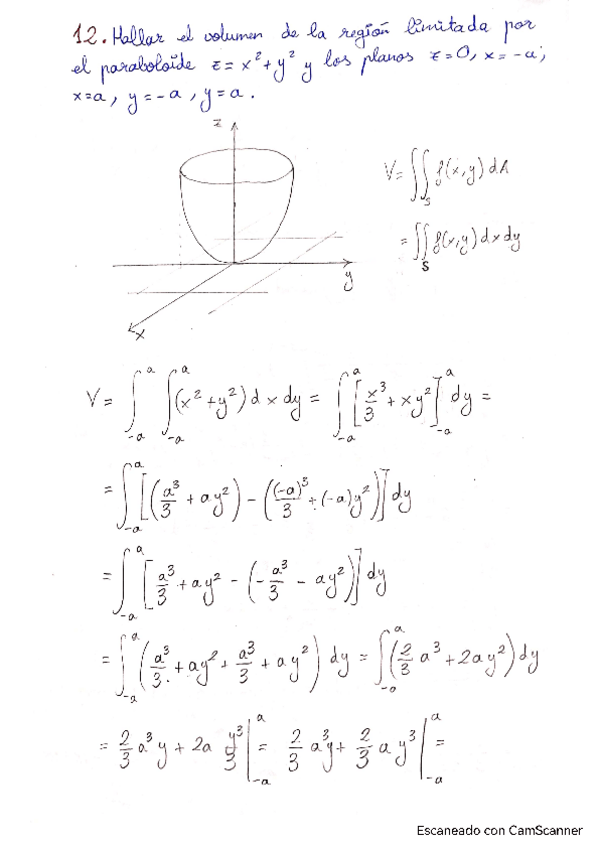 12. Hallar el volumen de la región limitada por
el paraboloide z = x² + y² y los planos z = 0, x = -a;
x = a, y = -a, y = a.
z
V = ∬_S f(x,y) dA
= ∬_S f(x,y) dx dy
y
x
V = ∫_{-a}^{a} ∫_{-a}^{a} (x² + y²) dx dy = ∫_{-a}^{a} [x³/3 + xy²]_{-a}^{a} dy =
= ∫_{-a}^{a} [(a³/3 + ay²) - ((-a)³/3 + (-a)y²)] dy
= ∫_{-a}^{a} [a³/3 + ay² - (-a³/3 - ay²)] dy
= ∫_{-a}^{a} (a³/3 + ay² + a³/3 + ay²) dy = ∫_{-a}^{a} (2/3 a³ + 2ay²) dy
= 2/3 a³y + 2a y³/3 |_{-a}^{a} = 2/3 a³y + 2/3 a y³ |_{-a}^{a} =
Escaneado con CamScanner